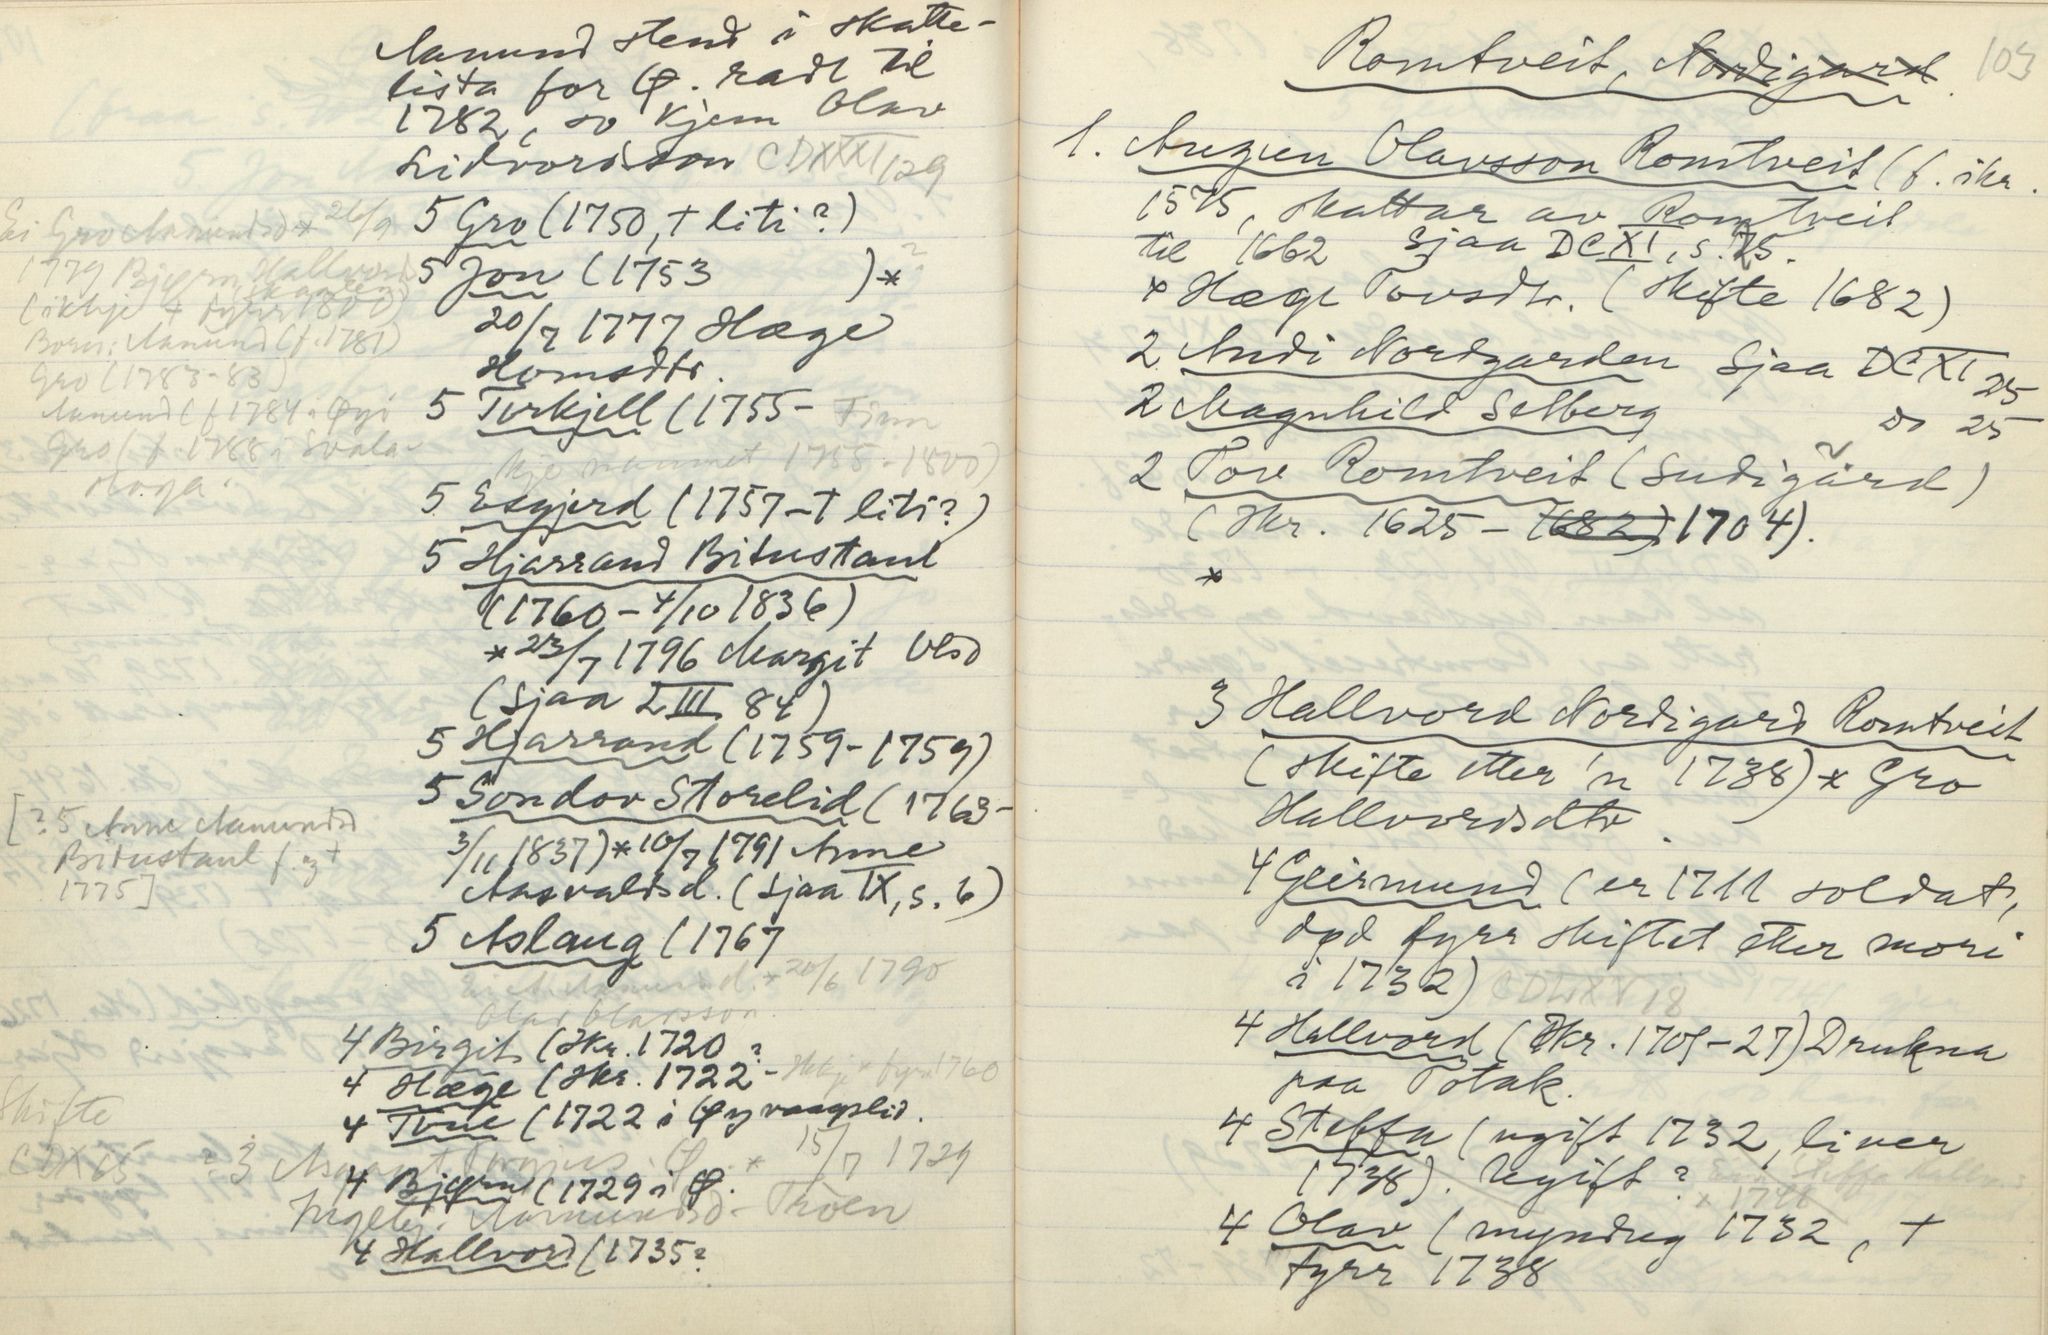 Aamund stend i skatte-
lista for Ø. radt til
1782, so kjem Olav
Lidvordsson CDXXXI/129
5 Gro (1750, + liti?)
5 Jon (1753 )* ?
20/7 1777 Hæge
Homsdtr.
5 Turkjell (1755- Finn
kje namnet 1755-1800)
5 Esgjerd (1757-+ liti?)
5 Hjarrand Bitustaul
(1760 - 4/10 1836)
* 23/7 1796 Margit Olsd
(Sjaa LIII 84)
5 Hjarrand (1759-1759)
5 Sondov Storelid (1763-
3/11 1837) * 10/7 1791 Anne
Aasvaldsd. (sjaa IX, s. 6)
5 Aslaug (1767
Ei A. Aamundsd. * 20/6 1790
Olav Olavsson.
4 Birgit (Ikr. 1720 ?
4 Hæge (Ikr. 1722 - Ikkje * fyrr 1760
4 Tone (1722 i Øyvaagslid.
? 3 * 15/7 1729
4 Bjørn (1729 i Ø.
Ingebj. Aamundsd. Troen
4 Hallvord (1735?
Ei Gro Aamundsd * 26/9
1779 Bjørn Hallvord
(ikkje + fyrr 1800)
Born: Aamund (f. 1781)
Gro (1783-83)
Aamund (f 1784 i Øyi
Gro (f. 1788 i Svala-
stoga.
[? 5 Anne Aamundsd
Bitustaul f. og +
1775]
Skifte
CDX 65
Romtveit, Nordigard. 103
1. Auzien Olavsson Romtveit (f. ikr.
1575, skattar av Romtveit
til 1662 Sjaa DCXI, s. 25.
* Hæge Tovsdtr. (skifte 1682)
2 Andi Nordgarden Sjaa DCXI 25
2 Magnhild Selberg do 25
2 Tov Romtveit (Sudigard)
(Ikr. 1625 - 1682) 1704).
*
3 Hallvord Nordigard Romtveit
(skifte etter 'n 1738) * Gro
Hallvordsdtr.
4 Geirmund (er 1711 soldat,
død fyrr skiftet etter mori
i 1732) CDLXXV 18
4 Hallvord (Ikr. 1701-27) Drukna
paa Totak.
4 Steffa (ugift 1732, liver
1738). Ugift?
4 Olav (myndug 1732, +
fyrr 1738